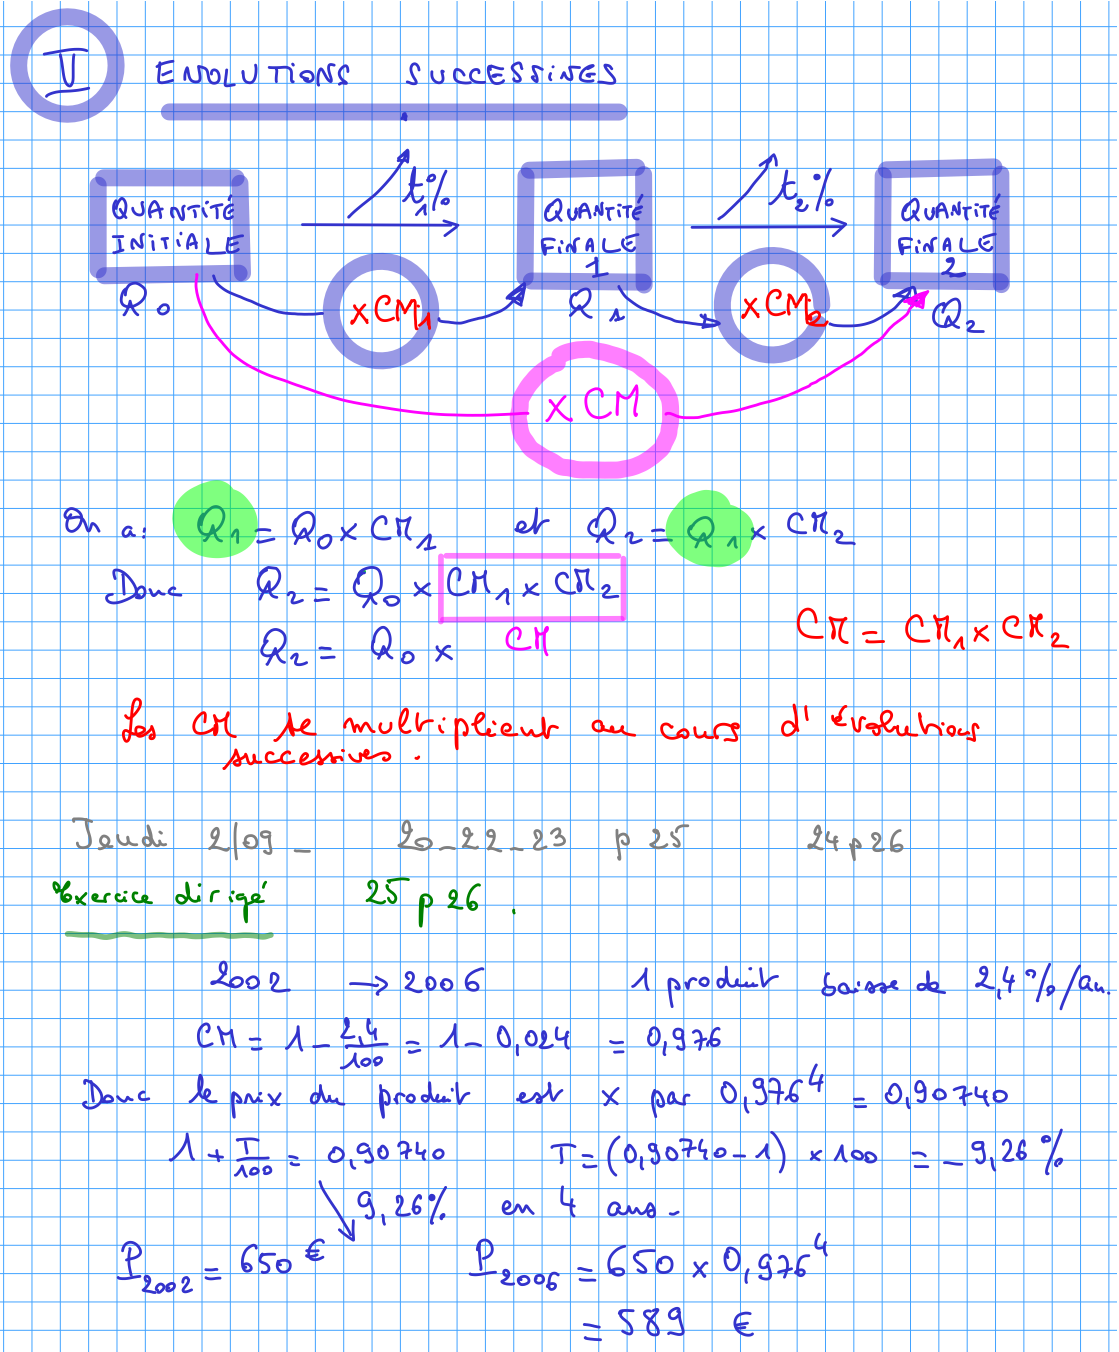 V EVOLUTIONS SUCCESSIVES
t₁% t₂%
QUANTITÉ INITIALE QUANTITÉ FINALE 1 QUANTITÉ FINALE 2
Q₀ ×CM₁ Q₁ ×CM₂ Q₂
× CM
On a: Q₁ = Q₀ × CM₁ et Q₂ = Q₁ × CM₂
Donc Q₂ = Q₀ × CM₁ × CM₂
Q₂ = Q₀ × CM
CM = CM₁ × CM₂
Les CM se multiplient au cours d'évolutions
successives.
Jeudi 2/09 _ 20_22_23 p 25 24 p 26
Exercice dirigé 25 p 26.
2002 → 2006 1 produit baisse de 2,4%/an.
CM = 1 - 2,4/100 = 1 - 0,024 = 0,976
Donc le prix du produit est × par 0,976⁴ = 0,90740
1 + T/100 = 0,90740 T = (0,90740 - 1) × 100 = -9,26 %
↘ 9,26% en 4 ans.
P₂₀₀₂ = 650 € P₂₀₀₆ = 650 × 0,976⁴
= 589 €